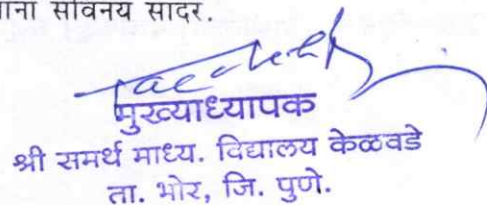 सविनय सादर.
मुख्याध्यापक
श्री समर्थ माध्य. विद्यालय केळवडे
ता. भोर, जि. पुणे.